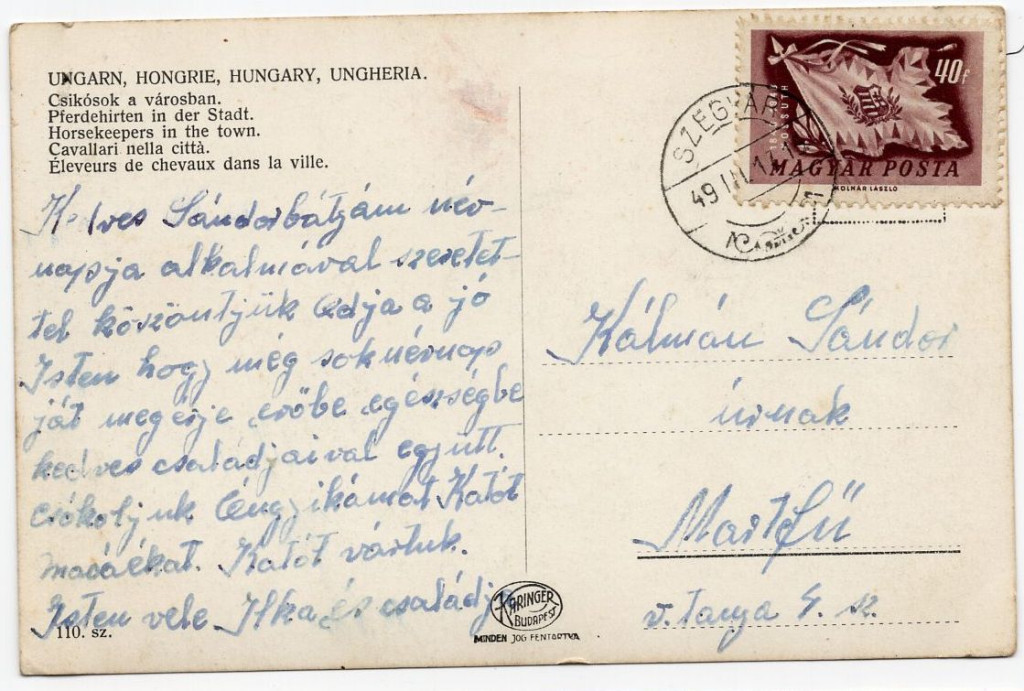 UNGARN, HONGRIE, HUNGARY, UNGHERIA.
Csikósok a városban.
Pferdehirten in der Stadt.
Horsekeepers in the town.
Cavallari nella città.
Éleveurs de chevaux dans la ville.
Kedves Sándorbátyám név-
napja alkalmával szeretet-
tel köszöntjük Adja a jó
Isten hogy még soknévnap
ját megérje erőbe egészségbe
kedves családjaival együtt.
csókoljuk Ángyikámat Katót
Katót vártuk.
Isten vele Ilka és családja
110. sz.
KARINGER
BUDAPEST
MINDEN JOG FENTARTVA
40f
KOSSUTH
MAGYAR POSTA
MOLNÁR LÁSZLÓ
SZEGVÁR
49 III
Kálmán Sándor
úrnak
Martfű
v. tanya 4. sz.